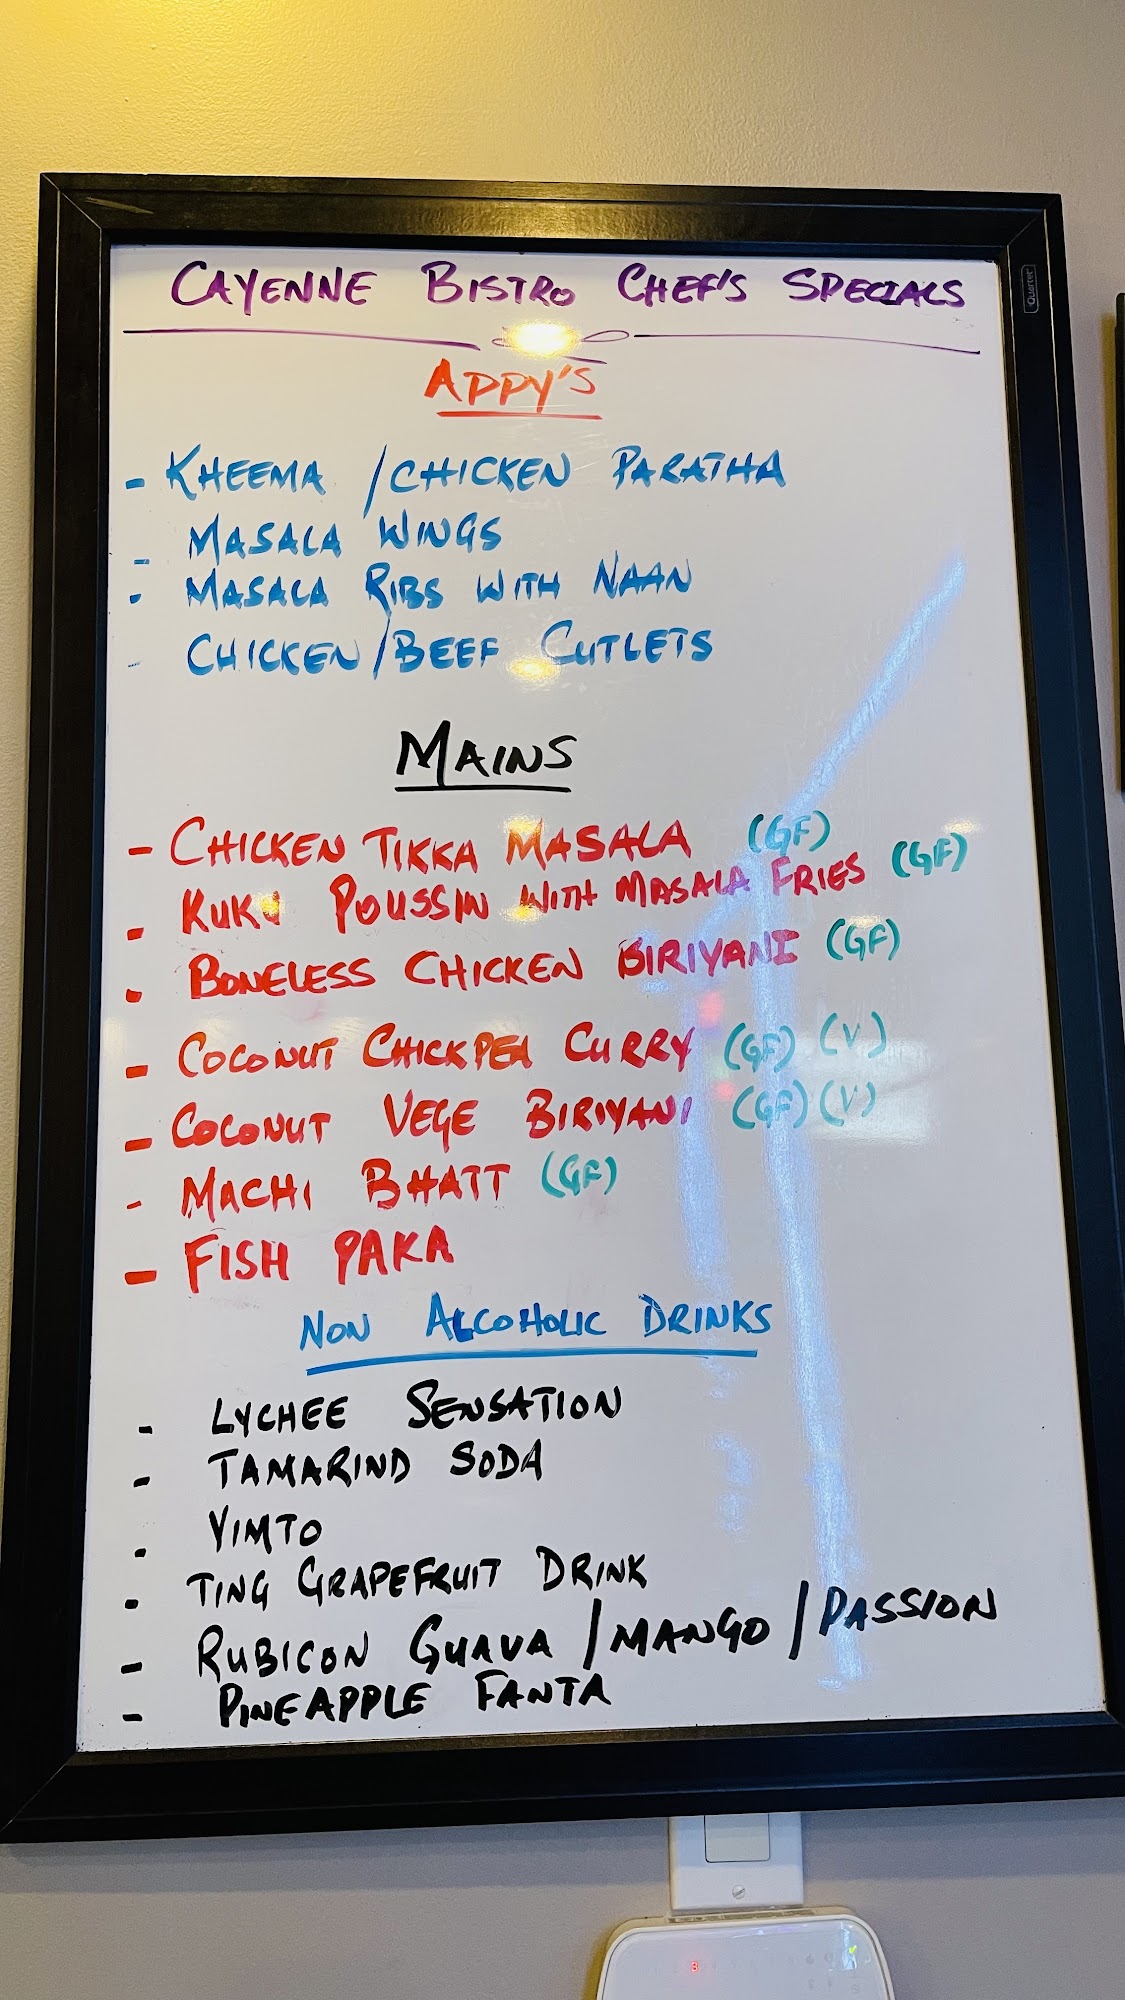 CAYENNE BISTRO CHEF'S SPECIALS
APPY'S
- KHEEMA / CHICKEN PARATHA
- MASALA WINGS
- MASALA RIBS WITH NAAN
- CHICKEN/BEEF CUTLETS
MAINS
- CHICKEN TIKKA MASALA (GF)
- KUKU POUSSIN WITH MASALA FRIES (GF)
- BONELESS CHICKEN BIRIYANI (GF)
- COCONUT CHICKPEA CURRY (GF) (V)
- COCONUT VEGE BIRIYANI (GF) (V)
- MACHI BHATT (GF)
- FISH PAKA
NON ALCOHOLIC DRINKS
- LYCHEE SENSATION
- TAMARIND SODA
- VIMTO
- TING GRAPEFRUIT DRINK
- RUBICON GUAVA / MANGO / PASSION
- PINEAPPLE FANTA
Quartet